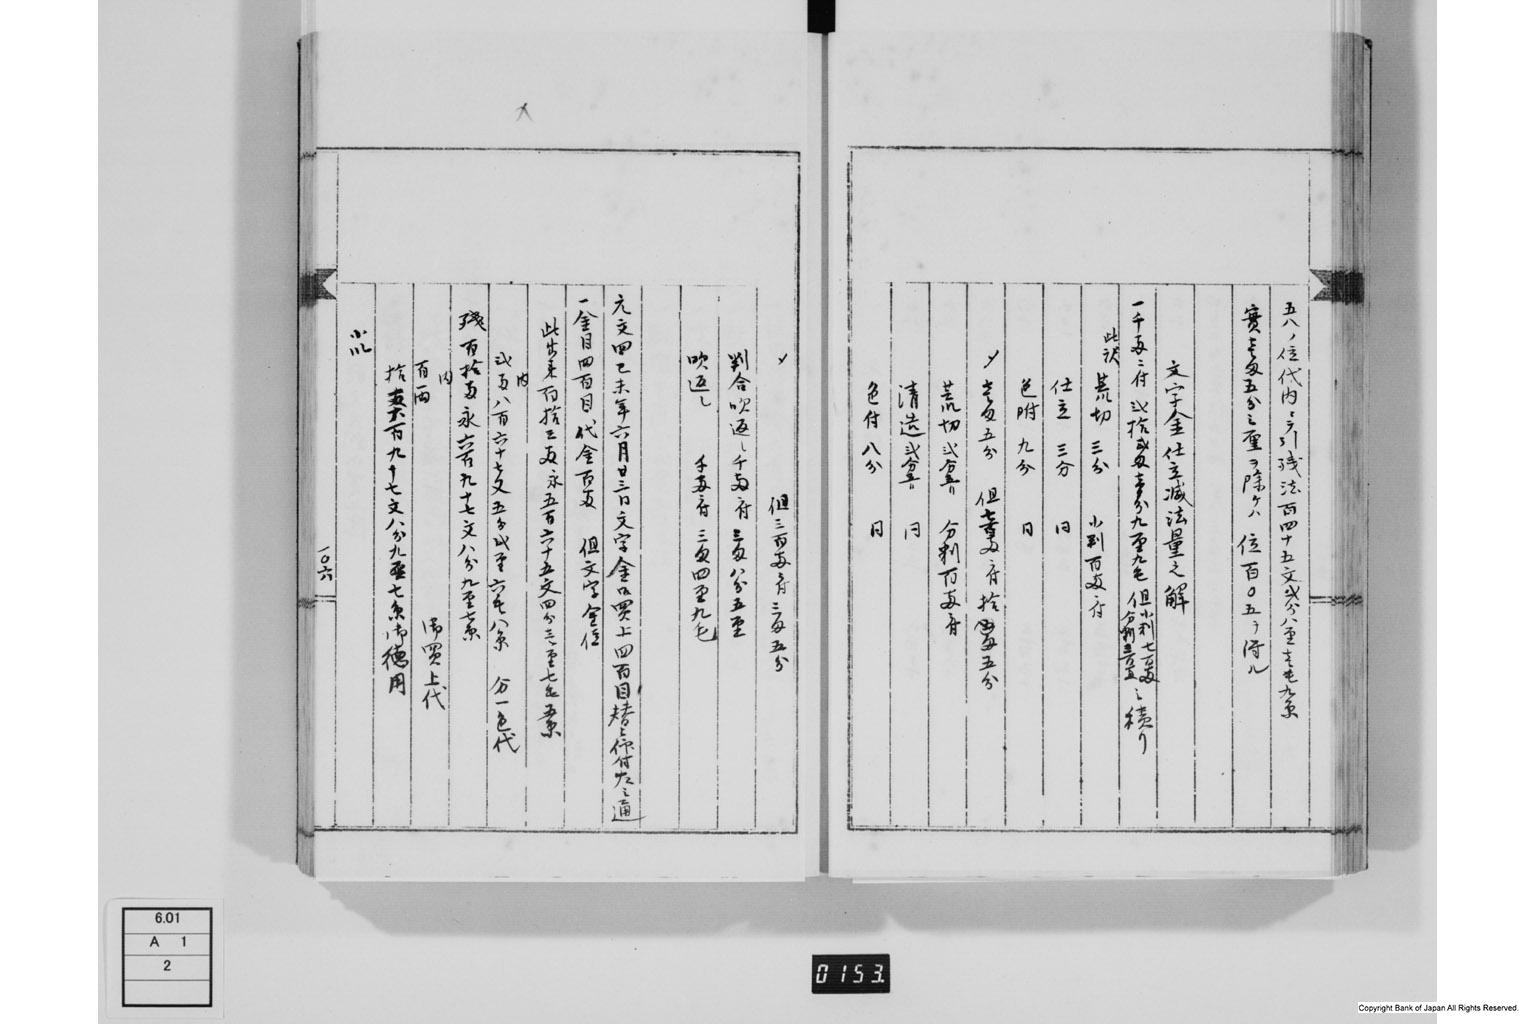 五八ノ位代内ニ引残法百四十五文弐分八厘壱毛九糸
實壱匁五分三厘ヲ除ケハ 位百〇五ヲ得ル
文字金仕立減法量之解
一千両ニ付弐拾 壱分九厘九毛 但小判七百両 分判三百両 之積り
此訳 荒切 三分 小判百両ニ付
仕立 三分 同
色附 九分 同
〆壱匁五分 但七百両ニ付拾 匁五分
荒切弐分 分判百両ニ付
清造弐分 同
色付八分 同
〆 但三百両ニ付三匁五分
判合吹返し千両ニ付三匁八分五厘
吹返し 千両ニ付三匁四厘九毛
元文四己未年六月廿三日文字金ニ而買上四百目替ニ被仰付候ニ通
一金目四百目代金百両 但文字金位
此出来百拾三両永五百六十五文四分三厘七毛五糸
内
弐両八百六十七文五分弐厘六毛八糸 分一色代
残百拾両永六百九十七文八分九厘七糸
内
百両 御買上代
拾 両六百九十七文八分九厘七糸御徳用
小以
一〇六
6.01
A 1
2
0153
Copyright Bank of Japan All Rights Reserved.